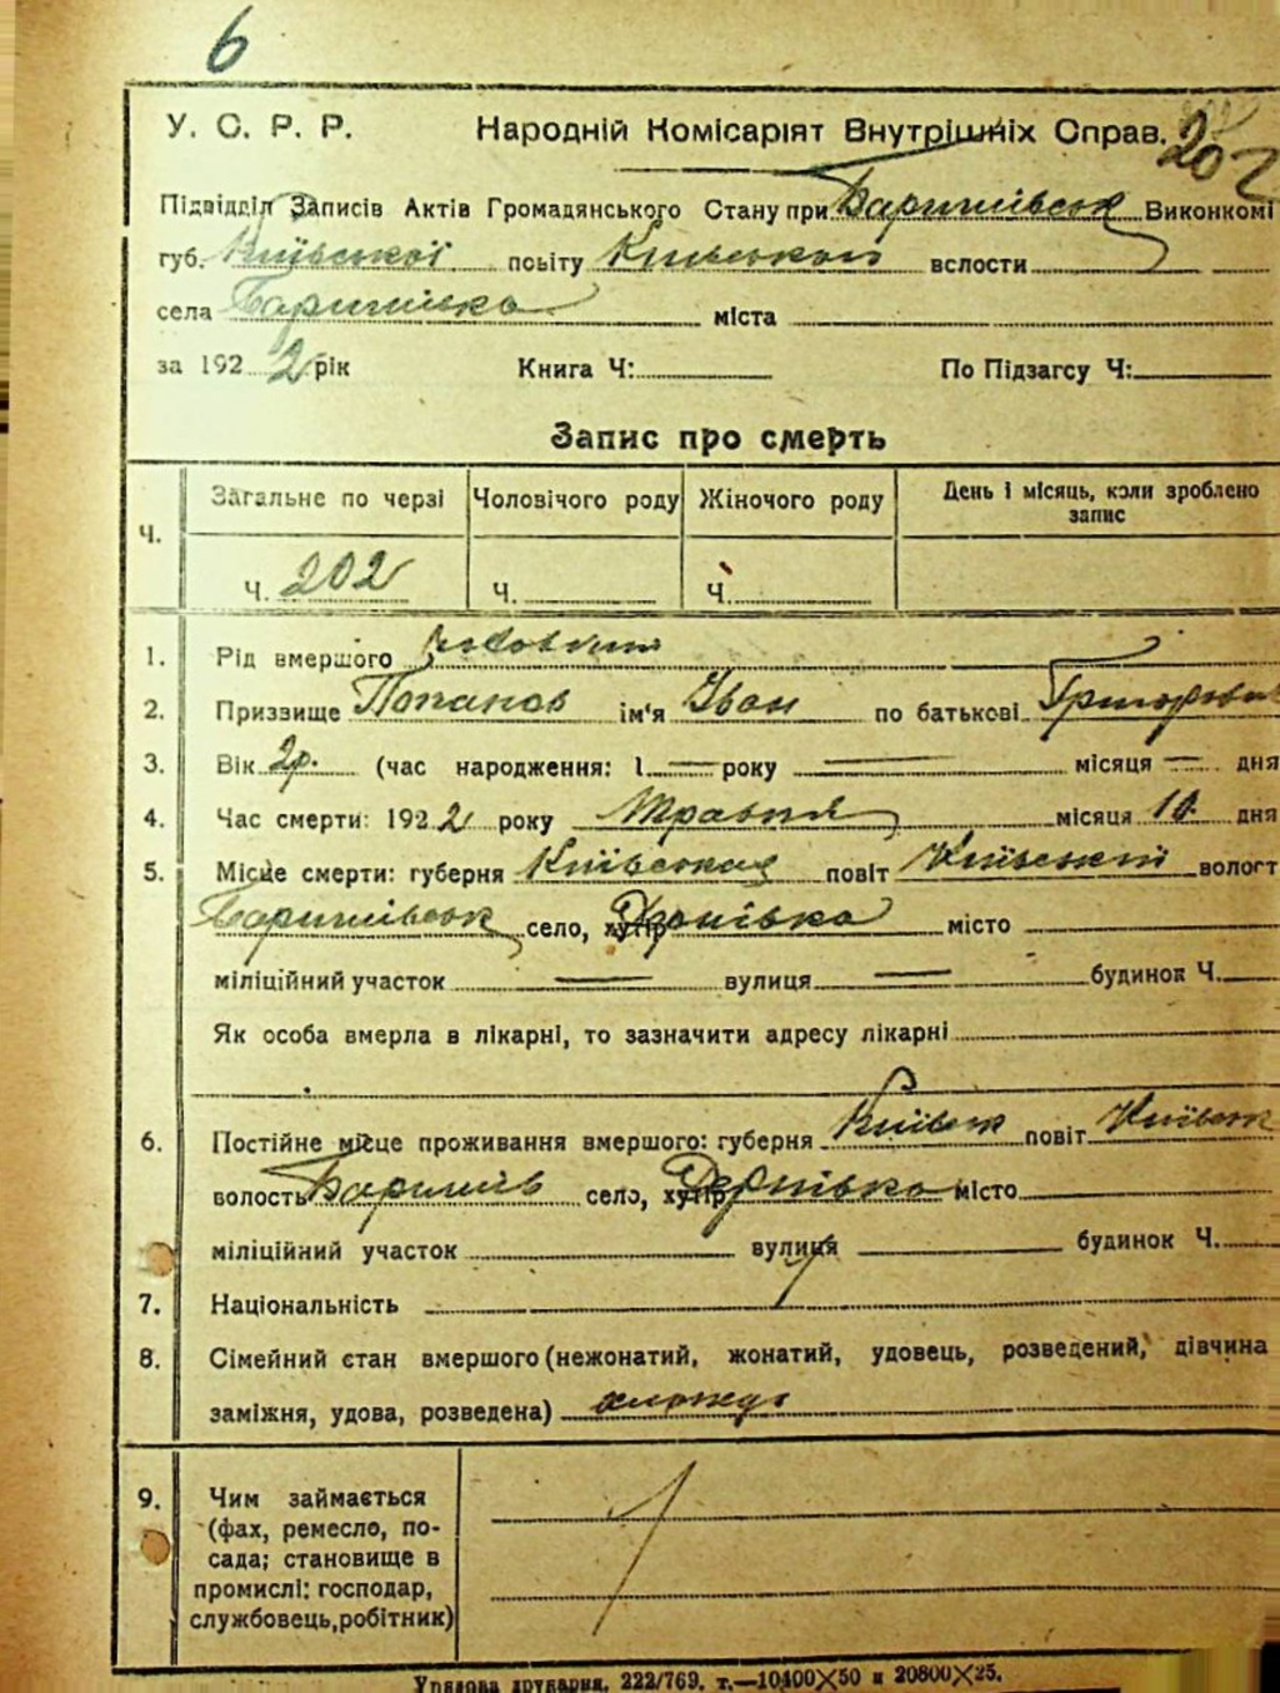 6
У. С. Р. Р. Народній Комісаріят Внутрішніх Справ. 202
Підвідділ Записів Актів Громадянського Стану при Баришівськ Виконкомі
губ. Київської повіту Київського волости
села Баришівка міста
за 1922 рік Книга Ч: По Підзагсу Ч:
Запис про смерть
Ч. Загальне по черзі Чоловічого роду Жіночого роду День і місяць, коли зроблено
запис
Ч. 202 Ч. Ч.
1. Рід вмершого чоловічий
2. Призвище Попанов ім'я Іван по батькові Григорович
3. Вік 2р. (час народження: 1 — року — місяця — дня
4. Час смерти: 1922 року Травня місяця 10 дня
5. Місце смерти: губерня Київська повіт Київський волост
Баришівськ село, хутір місто
міліційний участок — вулиця — будинок Ч.
Як особа вмерла в лікарні, то зазначити адресу лікарні
6. Постійне місце проживання вмершого: губерня Київськ повіт Київськ
волость Баришів село, хутір Дернівка місто
міліційний участок вулиця будинок Ч.
7. Національність
8. Сімейний стан вмершого (нежонатий, жонатий, удовець, розведений, дівчина
заміжня, удова, розведена)
9. Чим займається
(фах, ремесло, по-
сада; становище в
промислі: господар,
службовець, робітник)
друкарня. 222/769. т.—10400×50 и 20800×25.